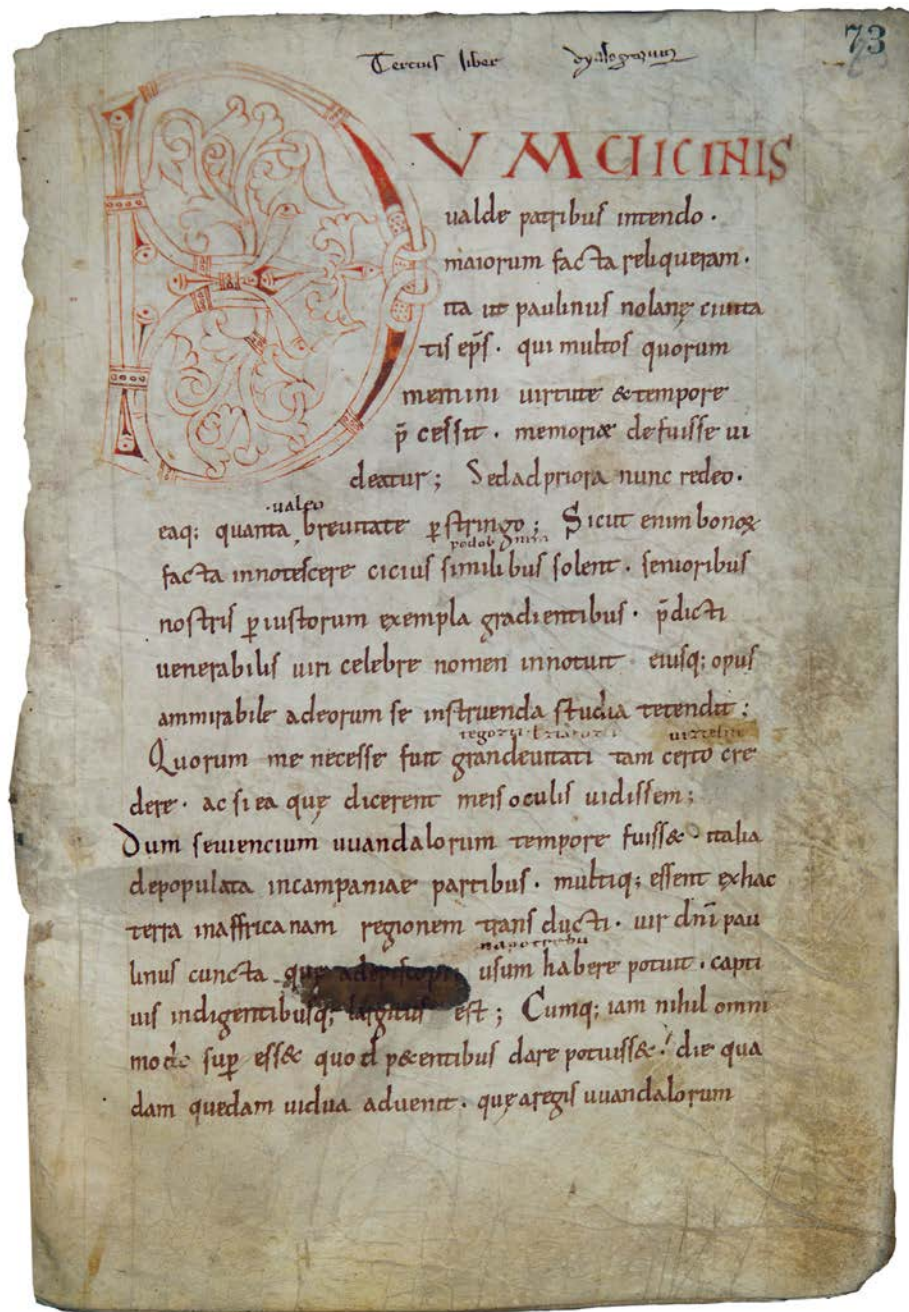 Tercius liber dyalogorum
73
DVM UICINIS
ualde patribus intendo.
maiorum facta reliqueram.
ita ut paulinus nolanę ciuita
tis ep̄s. qui multos quorum
memini uirtute & tempore
p̄cessit. memoriæ defuisse ui
deatur; Sed ad priora nunc redeo.
ualeo
eaq; quanta breuitate ꝑstringo; Sicut enim bonoꝝ
facta innotescere cicius similibus solent. senioribus
nostris ꝑ iustorum exempla gradientibus. p̄dicti
uenerabilis uiri celebre nomen innotuit eiusq; opus
ammirabile ad eorum se instruenda studia tetendit;
Quorum me necesse fuit grandeuitati tam certo cre
dere. ac si ea quę dicerent meis oculis uidissem;
Dum seuiencium uuandalorum tempore fuiss& italia
depopulata in campaniae partibus. multiq; essent ex hac
terra in affricanam regionem transducti. uir dn̄i pau
linus cuncta que ad episcopii usum habere potuit. capti
uis indigentibusq; largitus est; Cumq; iam nihil omni
modo suꝑ ess& quod p&entibus dare potuiss&. die qua
dam quedam uidua aduenit. quę a regis uuandalorum